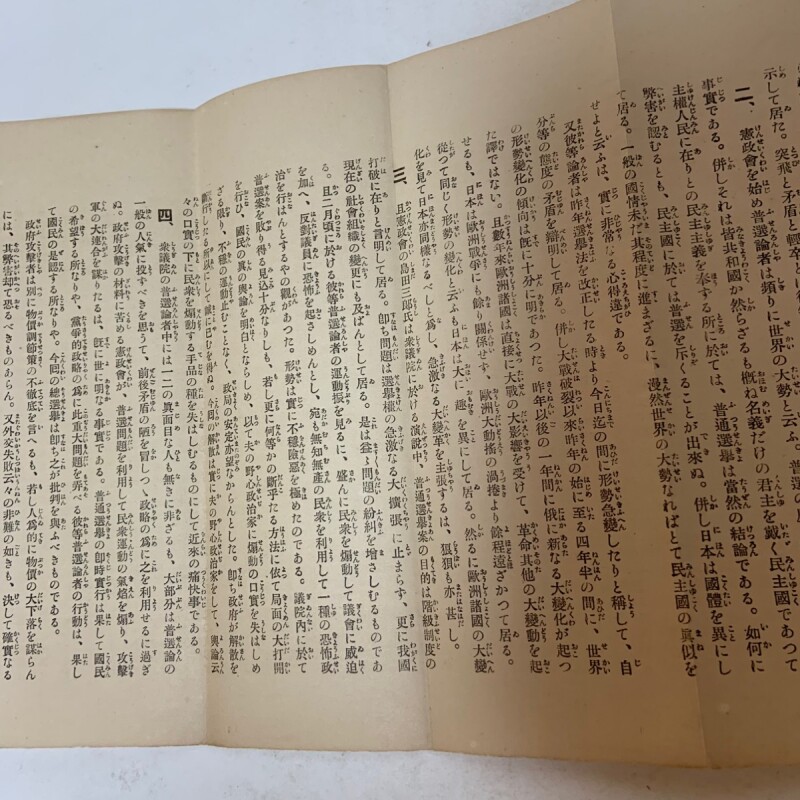 示して居た。突飛と矛盾と輕卒とは、普選の
二、憲政會を始め普選論者は頻りに世界の大勢と云ふ。
事實である。併しそれは皆共和國か然らざるも概ね名義だけの君主を戴く民主國であつて
主權人民に在りとの民主主義を奉ずる所に於ては、普通選擧は當然の結論である。如何に
弊害を認むるとも、民主國に於ては普選を斥くることが出來ぬ。併し日本は國體を異にし
て居る。一般の國情未だ其程度に進まざるに、漫然世界の大勢なればとて民主國の眞似を
せよと云ふは、實に非常なる心得違である。
又彼等論者は昨年選擧法を改正したる時より今日迄の間に形勢急變したりと稱して、自
分等の態度の矛盾を辯明して居る。併し大戰破裂以來昨年の始に至る四年半の間に、世界
の形勢變化の傾向は既に十分に明であつた。昨年以後の一年間に俄に新なる大變化が起つ
た譯ではない。且數年來歐洲諸國は直接に大戰の大影響を受けて、革命其他の大變動を起
せるも、日本は歐洲戰爭にも餘り關係せず、歐洲大動搖の渦捲より餘程遠ざかつて居る。
從つて同じく形勢の變化と云ふも日本は大に趣を異にして居る。然るに歐洲諸國の大變
化を見て日本亦同樣なるべしと爲し、急激なる大變革を主張するは、狼狽も亦甚し。
三、且憲政會の島田三郎氏は衆議院に於ける演説中、普通選擧案の目的は階級制度の
打破に在りと言明して居る。卽ち問題は選擧權の急激なる大擴張に止まらず、更に我國
現在の社會組織の變更にも及ばんとして居る。是は益々問題の紛糾を增さしむるものであ
る。且二月頃に於ける彼等普選論者の運動振を見るに、盛んに民衆を煽動して議會に威迫
を加へ、反對議員に恐怖を起さしめんとし、宛も無知無產の民衆を利用して一種の恐怖政
治を行はんとするやの觀があつた。形勢は實に不穩險惡を極めたのである。議院內に於て
普選案を敗り得る見込十分なりしも、若し更に何等かの斷乎たる方法に依て局面の大打開
を行ひ、國民の眞の輿論を明白ならしめ、以て夫の野心政治家に煽動の口實を失はしめ
ざる限り、不穩の運動は止むことなく、政局の安定亦望なからんとした。卽ち政府が解散を
斷行したる所以にして誠に已むを得ぬ。今囘の解散は實に夫の野心政治家をして、輿論云
々の口實の下に民衆を煽動する手品の種を失はしむるものにして近來の痛快事である。
四、衆議院の普選論者中には一二の眞面目な人も無きに非ざるも、大部分は普選論の
一般の人氣に投すべきを思うて、前後矛盾の陋を冒しつゝ政略の爲めに之を利用せるに過ぎ
ぬ。政府攻擊の材料に苦める憲政會が、普選問題を利用して民衆運動の氣焰を煽り、攻擊
軍の大連合を謀りたるは、既に世に明なる事實である。普通選擧の卽時實行は果して國民
の希望する所なりや、黨爭的政略の爲に此重大問題を弄べる彼等普選論者の行動は、果し
て國民の是認する所なりや。今囘の總選擧は卽ち之が批判を與ふべきものである。
政府攻擊者は別に物價調節策の不徹底を言へるも、若し人爲的に物價の大下落を謀らん
には、其弊害却て恐るべきものあらん。又外交失敗云々の非難の如きも、決して確實なる